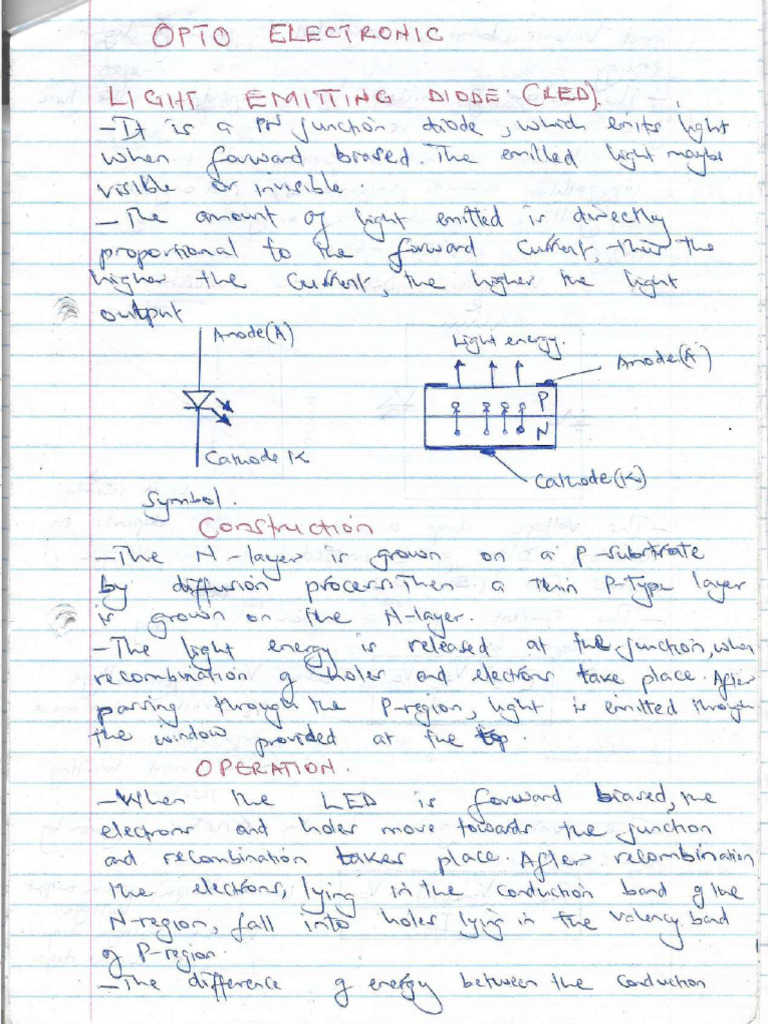 OPTO ELECTRONIC
LIGHT EMITTING DIODE: (LED).
- It is a PN junction diode, which emits light
when forward biased. The emitted light maybe
visible or invisible.
- The amount of light emitted is directly
proportional to the forward current, thus the
higher the current, the higher the light
output
Anode(A)
Cathode K
Symbol.
Light energy.
Anode(A)
P
N
Cathode(K)
Construction
- The N-layer is grown on a P-substrate
by diffusion process. Then a thin P-type layer
is grown on the N-layer.
- The light energy is released at the junction, when
recombination of holes and electrons take place. After
passing through the P-region, light is emitted through
the window provided at the top.
OPERATION.
- When the LED is forward biased, the
electrons and holes move towards the junction
and recombination takes place. After recombination
the electrons, lying in the conduction band of the
N-region, fall into holes lying in the valency band
of P-region.
- The difference of energy between the conduction